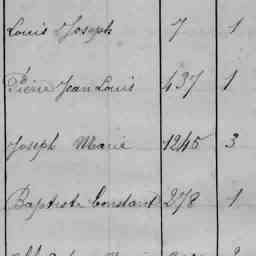 Louis Joseph 7 1
Pierre Jean Louis 437 1
Joseph Marie 1245 3
Baptiste Constant 278 1